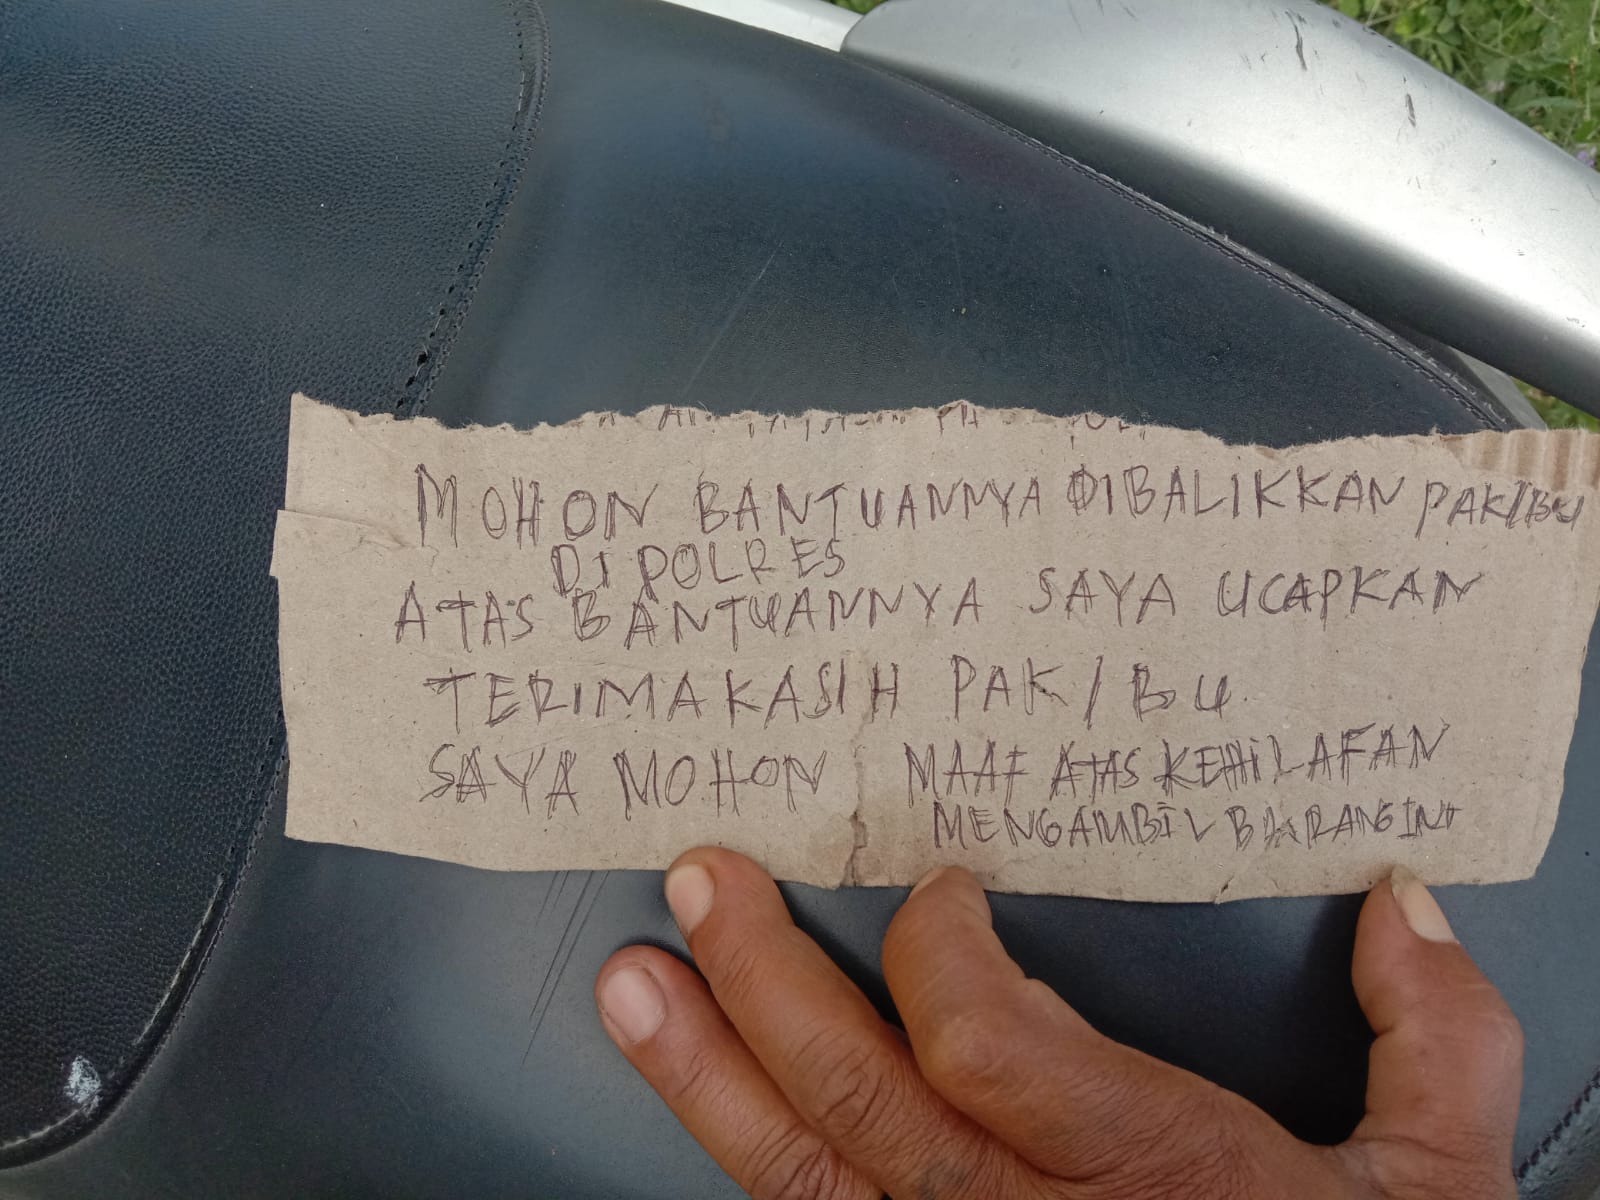 MOHON BANTUANNYA DIBALIKKAN PAK/IBU
DI POLRES
ATAS BANTUANNYA SAYA UCAPKAN
TERIMAKASIH PAK / BU.
SAYA MOHON MAAF ATAS KEHILAFAN
MENGAMBIL BARANG INI